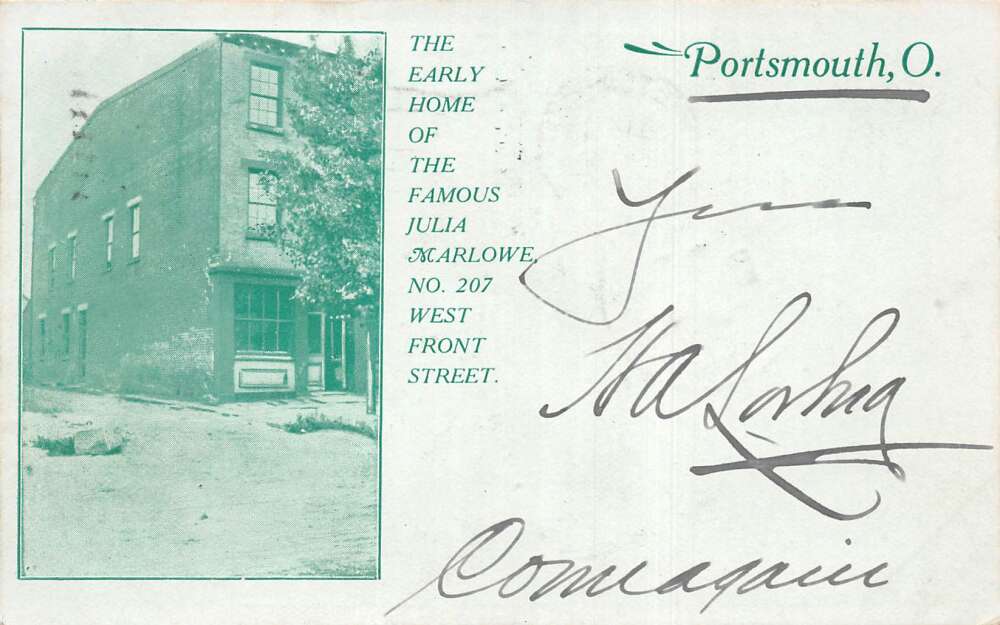 THE
EARLY
HOME
OF
THE
FAMOUS
JULIA
MARLOWE,
NO. 207
WEST
FRONT
STREET.
Portsmouth, O.
Come again